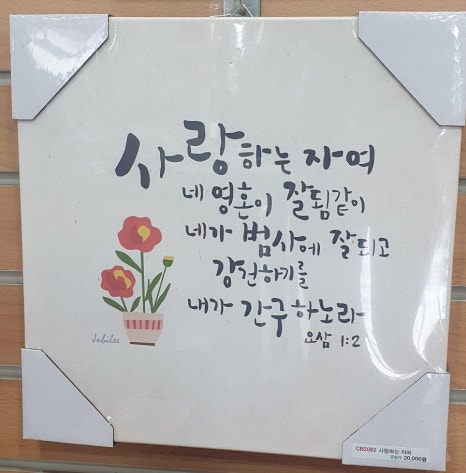 사랑하는 자여
네 영혼이 잘됨같이
네가 범사에 잘되고
강건하기를
내가 간구하노라
요삼 1:2
Jubilee
CB2082 사랑하는 자여
20,000원